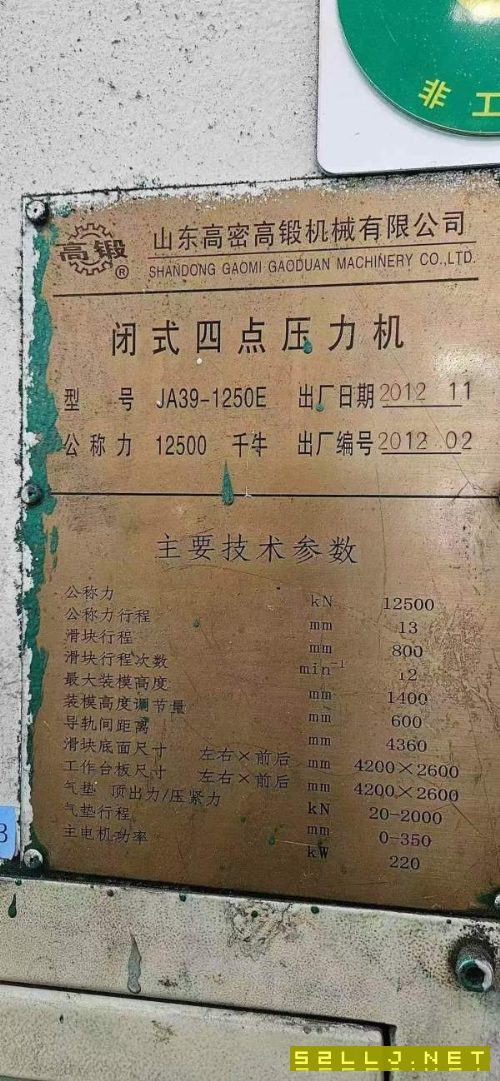 非工
高锻®
山东高密高锻机械有限公司
SHANDONG GAOMI GAODUAN MACHINERY CO.,LTD.
闭式四点压力机
型 号 JA39-1250E 出厂日期 2012 11
公称力 12500 千牛 出厂编号 2012 02
主要技术参数
公称力 kN 12500
公称力行程 mm 13
滑块行程 mm 800
滑块行程次数 min⁻¹ 12
最大装模高度 mm 1400
装模高度调节量 mm 600
导轨间距离 mm 4360
滑块底面尺寸 左右×前后 mm 4200×2600
工作台板尺寸 左右×前后 mm 4200×2600
气垫 顶出力/压紧力 kN 20-2000
气垫行程 mm 0-350
主电机功率 kW 220
52LLJ.NET